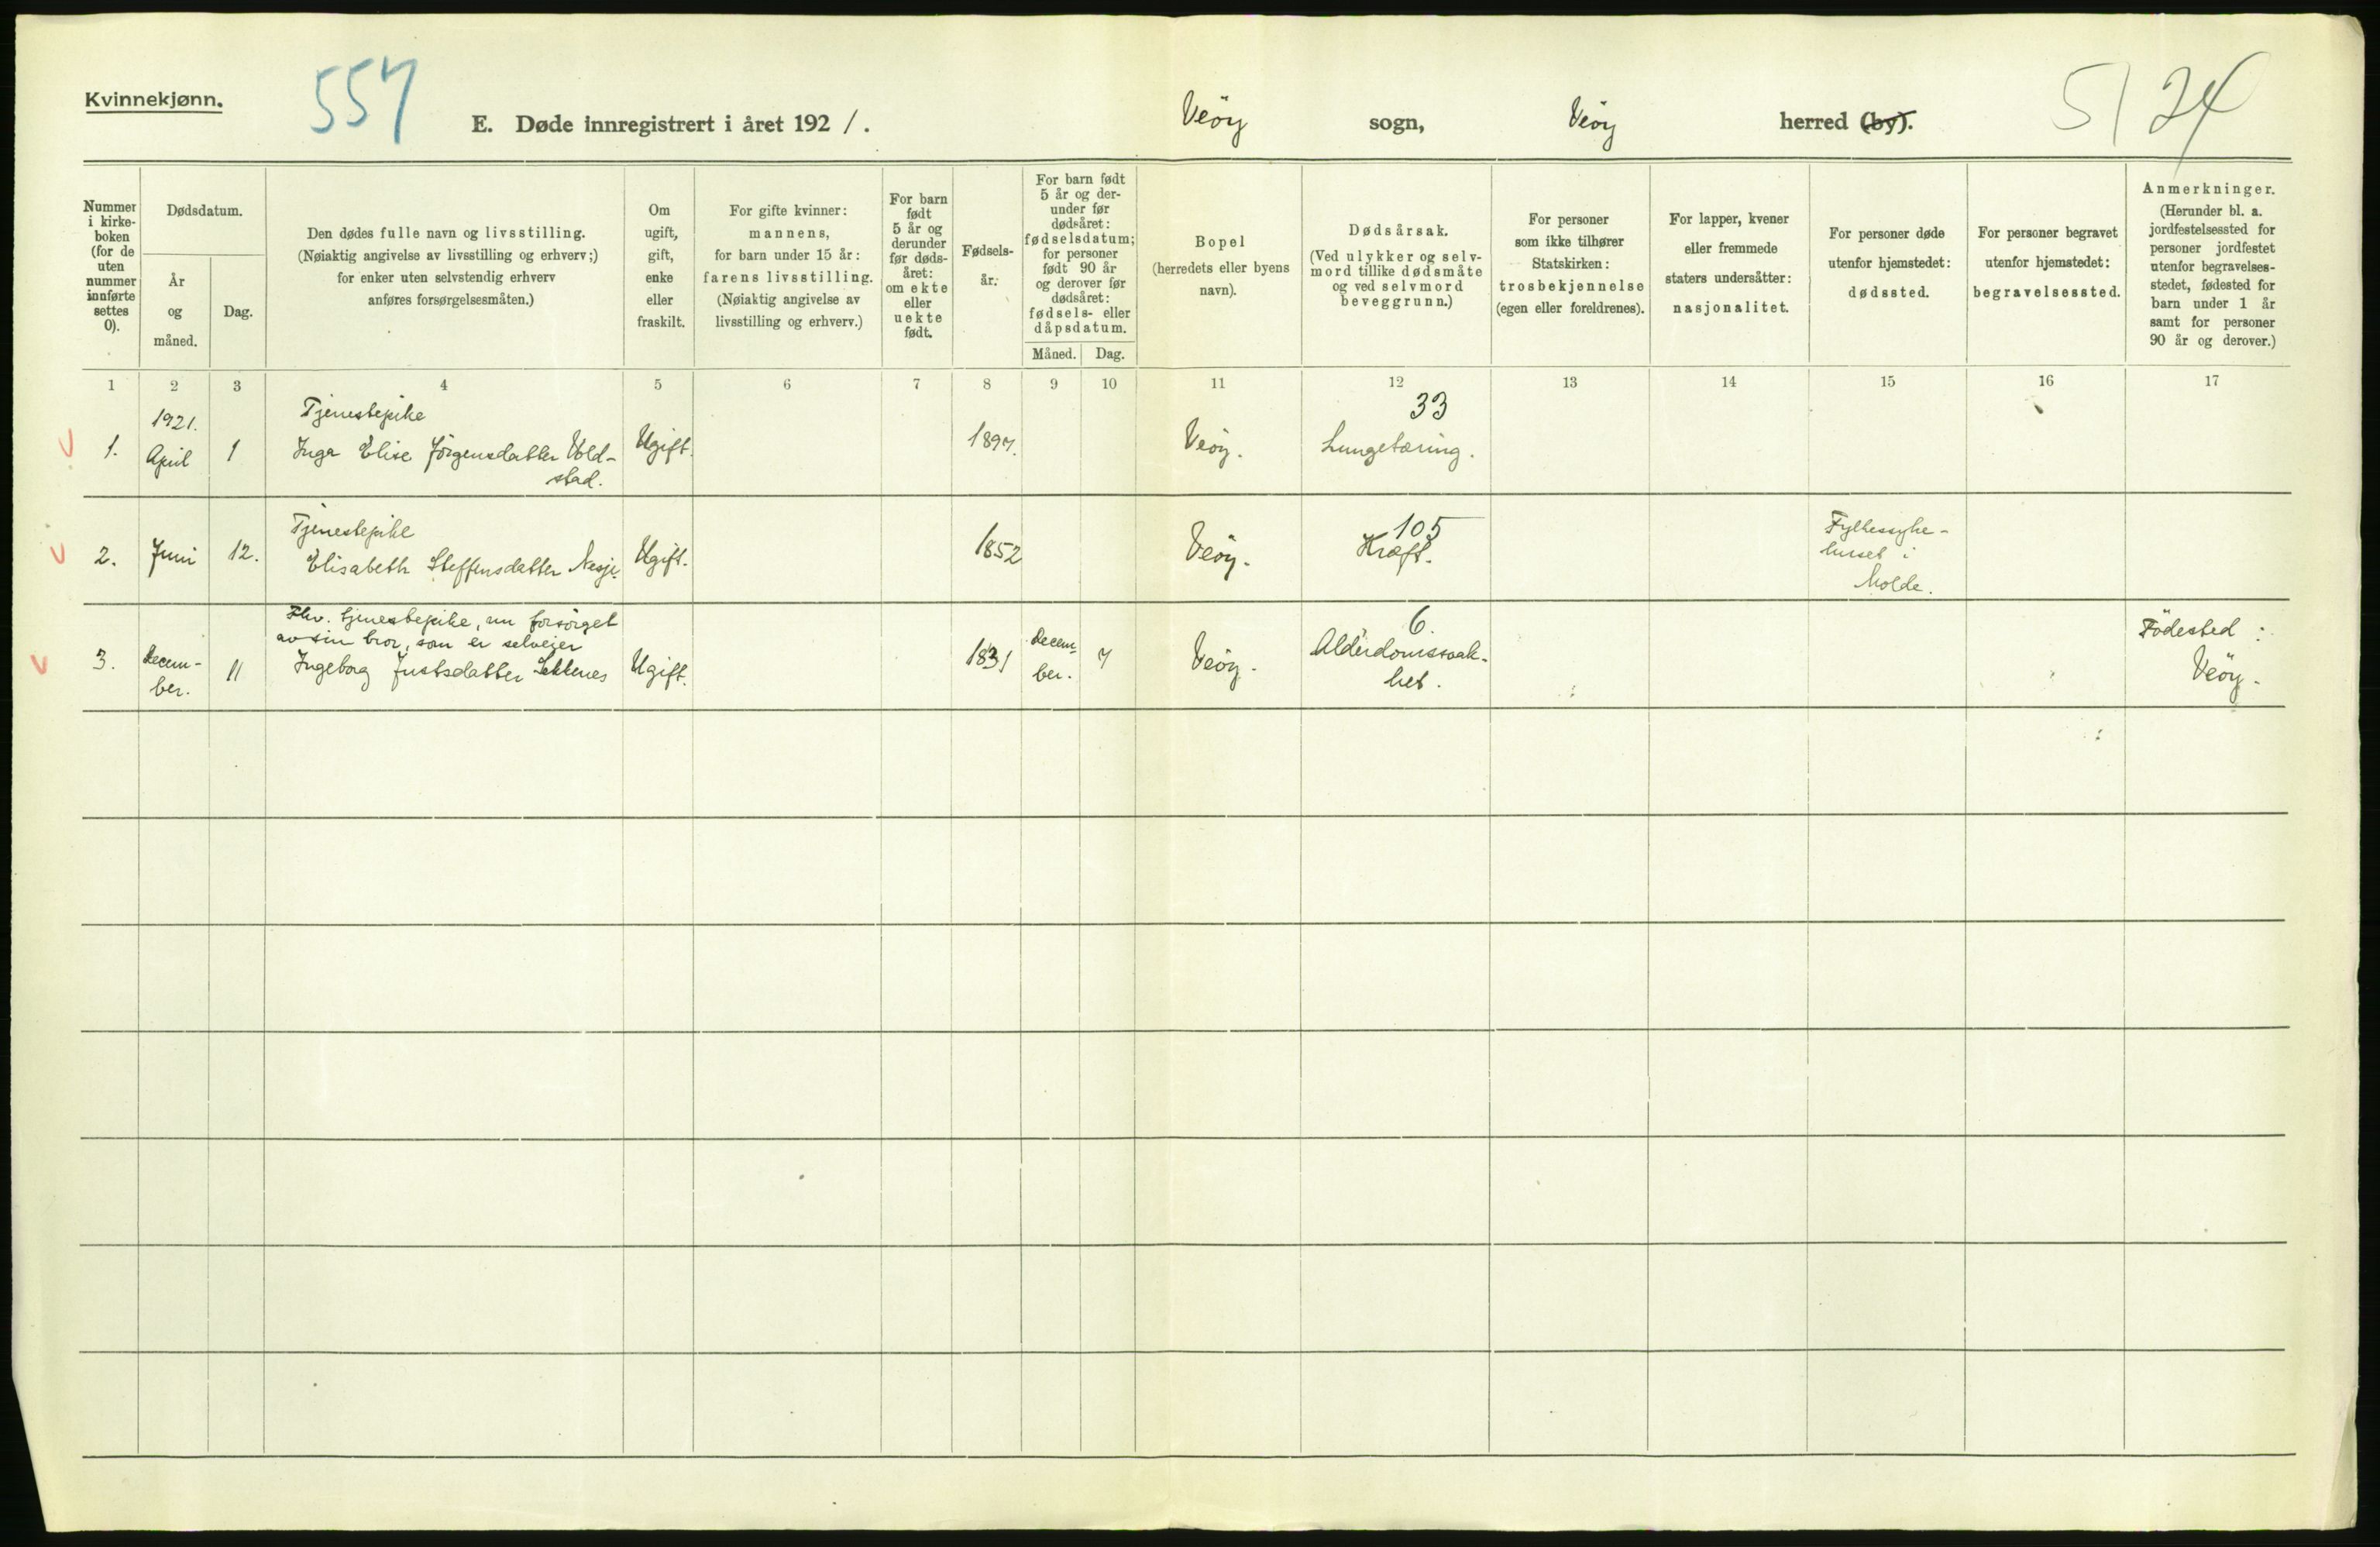 Kvinnekjønn.
557
E. Døde innregistrert i året 1921. Veöy sogn, Veöy herred (by).
5/24
Nummer i kirke-boken (for de uten nummer innførte settes 0).
Dødsdatum.
År og måned.
Dag.
Den dødes fulle navn og livsstilling.
(Nøiaktig angivelse av livsstilling og erhverv;)
for enker uten selvstendig erhverv
anføres forsørgelsesmåten.)
Om
ugift,
gift,
enke
eller
fraskilt.
For gifte kvinner:
mannens,
for barn under 15 år:
farens livsstilling.
(Nøiaktig angivelse av
livsstilling og erhverv.)
For barn
født
5 år og
derunder
før døds-
året:
om ekte
eller
uekte
født.
Fødsels-
år.
For barn født
5 år og der-
under før
dødsåret:
fødselsdatum;
for personer
født 90 år
og derover før
dødsåret:
fødsels- eller
dåpsdatum.
Måned. Dag.
Bopel
(herredets eller byens
navn).
Dødsårsak.
(Ved ulykker og selv-
mord tillike dødsmåte
og ved selvmord
beveggrunn.)
For personer
som ikke tilhører
Statskirken:
trosbekjennelse
(egen eller foreldrenes).
For lapper, kvener
eller fremmede
staters undersåtter:
nasjonalitet.
For personer døde
utenfor hjemstedet:
dødssted.
For personer begravet
utenfor hjemstedet:
begravelsessted.
Anmerkninger.
(Herunder bl. a.
jordfestelsessted for
personer jordfestet
utenfor begravelses-
stedet, fødested for
barn under 1 år
samt for personer
90 år og derover.)
1 2 3 4 5 6 7 8 9 10 11 12 13 14 15 16 17
1921.
Tjenestepike
33
1. April 1 Inga Elise Jörgensdatter Vold- Ugift. 1897. Veöy. Lungetæring.
stad.
Tjenestepike
105
Fylkessyke-
2. Juni 12. Elisabeth Steffensdatter Nesje. Ugift. 1852 Veöy. Kræft.
huset i
Molde.
Fhv. tjenestepike, nu forsörget
av sin bror, som er selveier
6.
3. Decem- 11 Ingeborg Justsdatter Sekkenes Ugift. 1831 Decem- 7 Veöy. Alderdomssvak-
Födested :
ber. ber. het. Veöy.